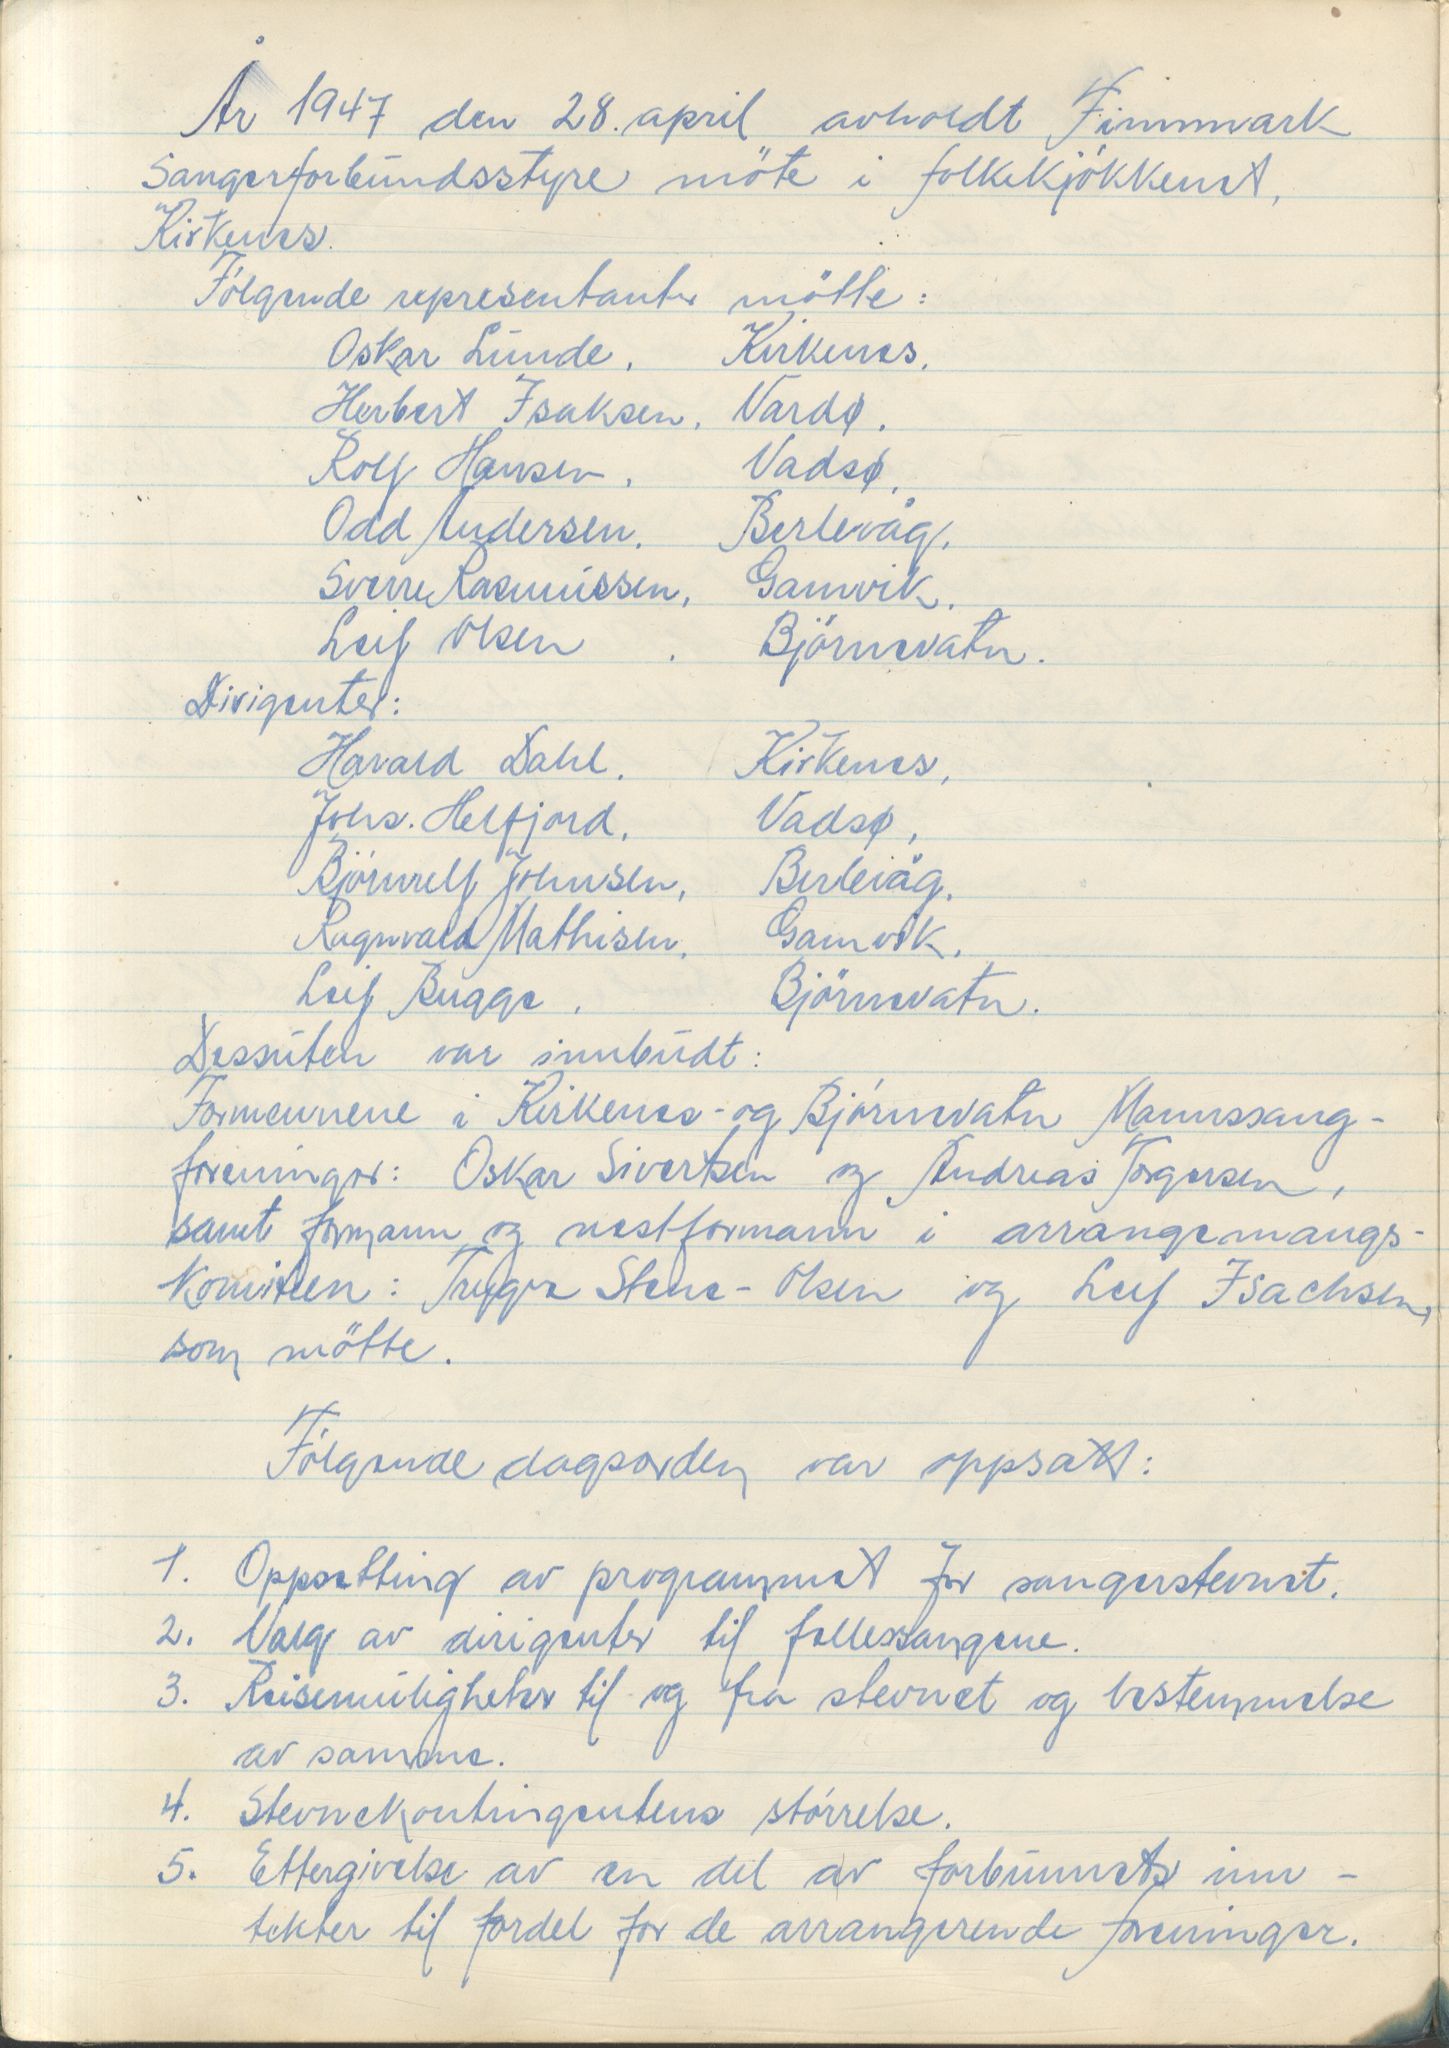 År 1947 den 28. april avholdt Finnmark
Sangerforbundsstyre möte i folkekjökkenet,
Kirkenes.
Følgende representanter mötte:
Oskar Lunde, Kirkenes.
Herbert Isaksen, Vardø.
Rolf Hansen, Vadsø,
Odd Andersen, Berlevåg,
Sverre Rasmussen, Gamvik.
Leif Olsen. Björnevatn.
Dirigenter:
Harald Dahl. Kirkenes,
Johs. Helfjord, Vadsø,
Björnulf Johnsen, Berlevåg,
Ragnvald Mathisen, Gamvik,
Leif Bugge. Björnevatn.
Dessuten var innbudt:
Formennene i Kirkenes- og Björnevatn Mannssang-
foreninger: Oskar Sivertsen og Andreas Torgersen,
samt formann og nestformann i arrangemangs-
komiteen: Trygve Stene-Olsen og Leif Isachsen,
som mötte.
Følgende dagsorden var oppsatt:
1. Oppsetting av programmet for sangerstevnet.
2. Valg av dirigenter til fellessangene.
3. Reisemuligheter til og fra stevnet og bestemmelse
av samme.
4. Stevnekontingentens större​lse.
5. Ettergivelse av en del av forbunnets inn-
tekter til fordel for de arrangerende foreninger.